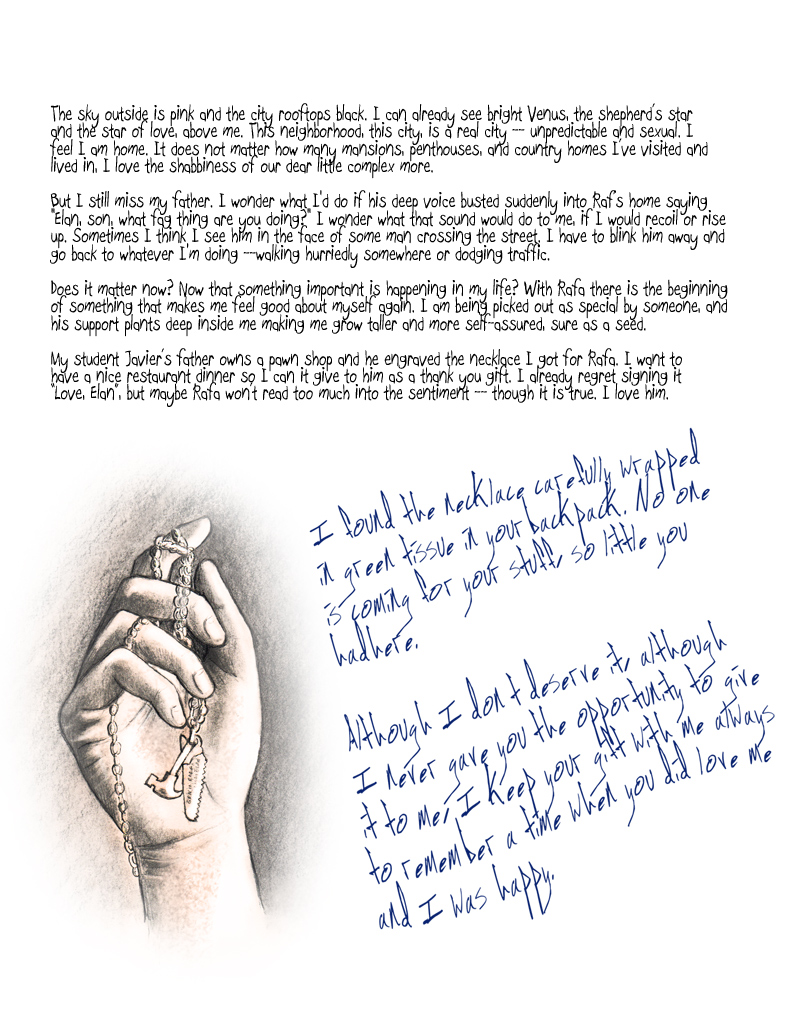 The sky outside is pink and the city rooftops black. I can already see bright Venus, the shepherd's star
and the star of love, above me. This neighborhood, this city, is a real city -- unpredictable and sexual. I
feel I am home. It does not matter how many mansions, penthouses, and country homes I've visited and
lived in, I love the shabbiness of our dear little complex more.
But I still miss my father. I wonder what I'd do if his deep voice busted suddenly into Raf's home saying
"Elan, son, what fag thing are you doing?" I wonder what that sound would do to me, if I would recoil or rise
up. Sometimes I think I see him in the face of some man crossing the street, I have to blink him away and
go back to whatever I'm doing --walking hurriedly somewhere or dodging traffic.
Does it matter now? Now that something important is happening in my life? With Rafa there is the beginning
of something that makes me feel good about myself again. I am being picked out as special by someone, and
his support plants deep inside me making me grow taller and more self-assured, sure as a seed.
My student Javier's father owns a pawn shop and he engraved the necklace I got for Rafa. I want to
have a nice restaurant dinner so I can it give to him as a thank you gift. I already regret signing it
"Love, Elan", but maybe Rafa won't read too much into the sentiment -- though it is true. I love him.
I found the necklace carefully wrapped
in green tissue in your backpack. No one
is coming for your stuff, so little you
hadhere.
Although I don't deserve it, although
I never gave you the opportunity to give
it to me, I keep your gift with me always
to remember a time when you did love me
and I was happy.